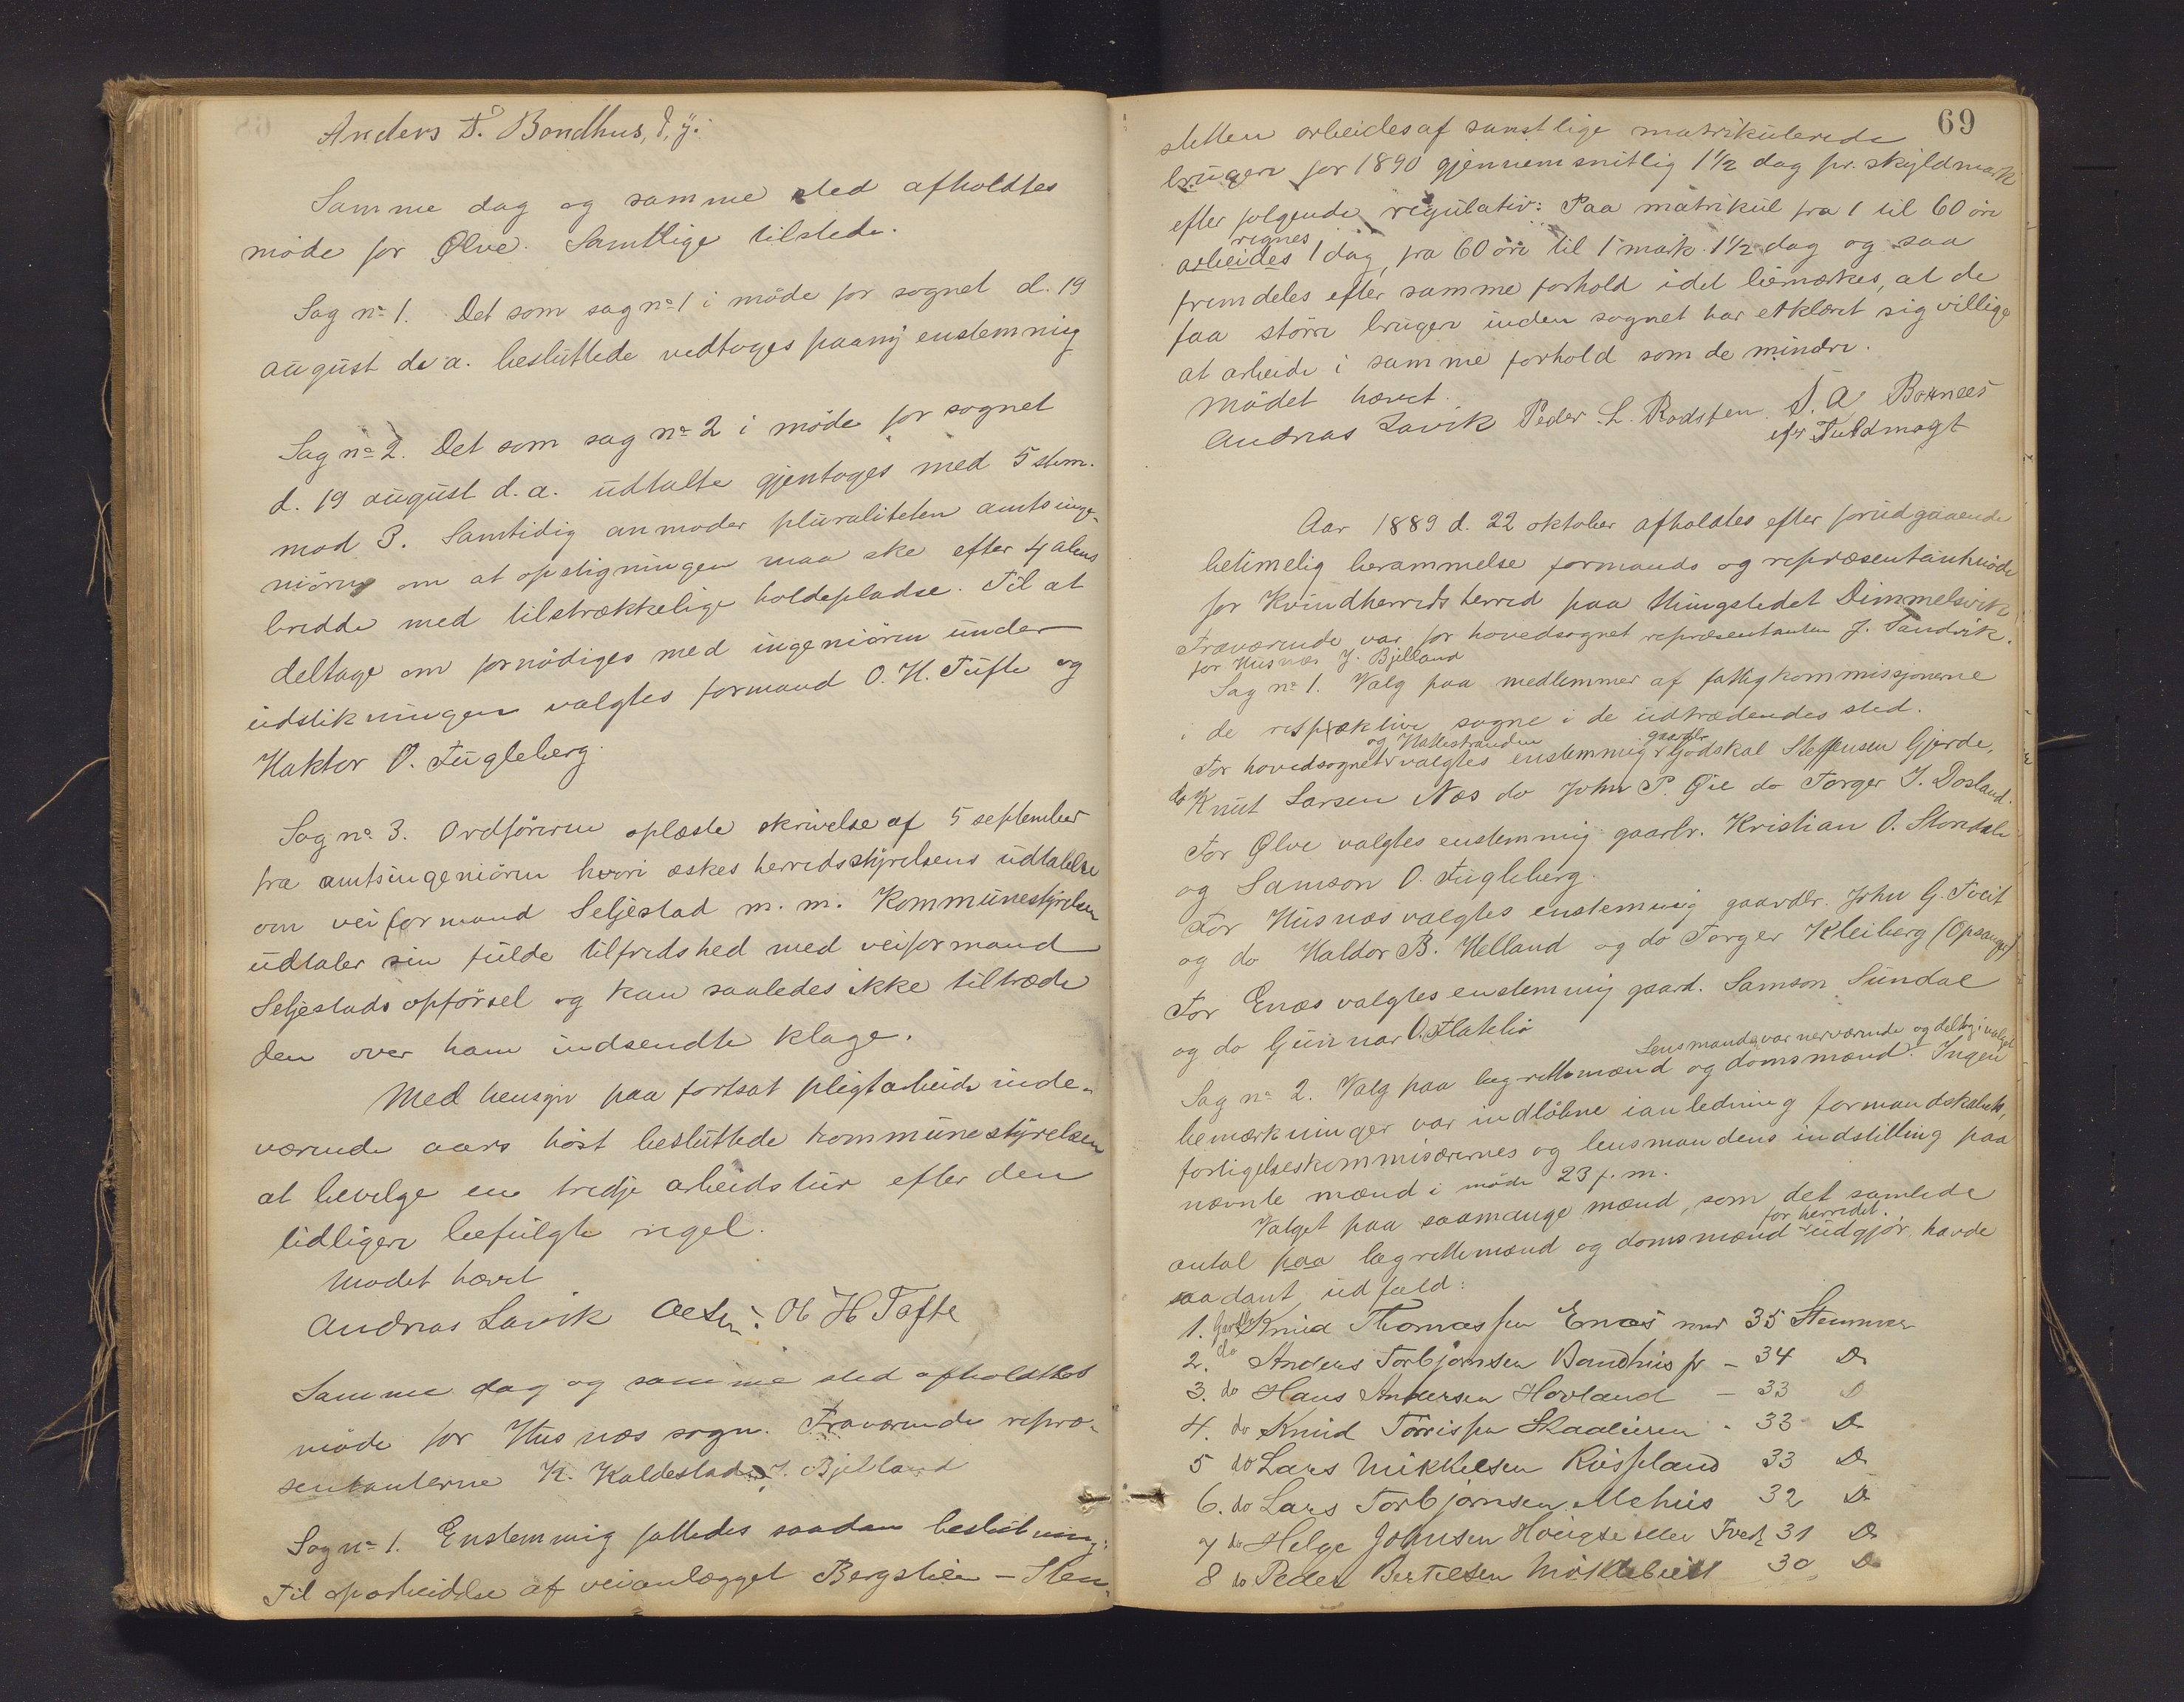 Anders T. Bondhus, d. y.
Samme dag og samme sted afholdtes
møde for Ølve. Samtlige tilstede.
Sag no 1. Det som sag no 1 i møde for sognet d. 19
august d. a. besluttede vedtoges paany enstemmig
Sag no 2. Det som sag no 2 i møde for sognet
d. 19 august d. a. udtalte gjentoges med 5 stem.
mod 3. Samtidig anmoder pluraliteten amtsinge-
niøren om at opstigningen maa ske efter 4 alens
bredde med tilstrækkelige holdepladse. Til at
deltage om fornødiges med ingeniøren under
udstikningen valgtes formand O. H. Tufte og
Haktor O. Fugleberg.
Sag no 3. Ordføreren oplæste skrivelse af 5 september
fra amtsingeniøren hvori æskes herredsstyrelsens udtalelse
om veiformand Seljestad m. m. Kommunestyrelsen
udtaler sin fulde tilfredshed med veiformand
Seljestads opførsel og kan saaledes ikke tiltræde
den over ham indsendte klage.
Med hensyn paa fortsat pligtarbeide inde-
værende aars høst besluttede kommunestyrelsen
at bevilge en tredje arbeidstur efter den
tidligere befulgte regel.
Mødet hævet
Andreas Lavik Ol H Tofte
Samme dag og samme sted afholdtes
møde for Husnæs sogn. Fraværende repræ-
sentanterne K. Kaldestad, J. Bjelland
Sag no 1. Enstemmig fattedes saadan beslutning:
Til oparbeidelse af veianlægget Bergstien – Sten-
69
sletten arbeides af samtlige matrikulerede
brugere for 1890 gjennemsnitlig 1 1/2 dag pr. skyldmark
efter følgende regulativ: Paa matrikul fra 1 til 60 øre
regnes
arbeides 1 dag, fra 60 øre til 1 mark 1 1/2 dag og saa
fremdeles efter samme forhold idet bemærkes, at de
faa større brugere inden sognet har erklæret sig villige
at arbeide i samme forhold som de mindre.
Mødet hævet.
Andreas Lavik Peder L. Rodsten T. A. Bornæs
efter Fuldmagt
Aar 1889 d. 22 oktober afholdtes efter forudgaaende
betimelig berammelse formands og repræsentantmøde
for Kvindherreds herred paa thingstedet Dimmelsvik
Fraværende var for hovedsognet repræsentanten J. Sandvik.
for Husnæs J. Bjelland
Sag no 1. Valg paa medlemmer af fattigkommissjonerne
i de respæktive sogne i de udtrædendes sted.
og Hattestranden gaardbr
For hovedsognet valgtes enstemmig Godskal Steffensen Gjerde,
do Knut Larsen Næs do John P. Øie do Torger I. Dosland.
For Ølve valgtes enstemmig gaarbr. Kristian O. Stordale
og Samson O. Fugleberg.
For Husnæs valgtes enstemmig gaardbr. John G. Tveit
og do Haldor B. Helland og do Torger Kleiberg (Opsanger)
For Enæs valgtes enstemmig gaard. Samson Sundal
og do Gunnar O. Flatebø
Lensmanden var nerværende og deltog i valget
Sag no 2. Valg paa lagrettemænd og domsmænd. Ingen
bemærkninger var indløbne ianledning formandskabets,
forligelseskommisærernes og lensmandens indstilling paa
nævnte mænd i møde 23 f. m.
Valget paa saamange mænd, som det samlede
for herredet
antal paa lagrettemænd og domsmænd udgjør, havde
saadant udfald:
1. Gaardbr Knud Thomassen Enæs med 35 Stemmer
2. do Anders Torbjørnsen Bondhus jr – 34 Do
3. do Hans Andersen Hovland – 33 D
4. do Knud Tørrissen Skaaleren - 33 Do
5 do Lars Mikkelsen Røssland 33 Do
6. do Lars Torbjørnsen Mehus 32 Do
7 do Helge Johnsen Tvedt 31 Do
8 do Peder Bertelsen Møklebust 30 Do